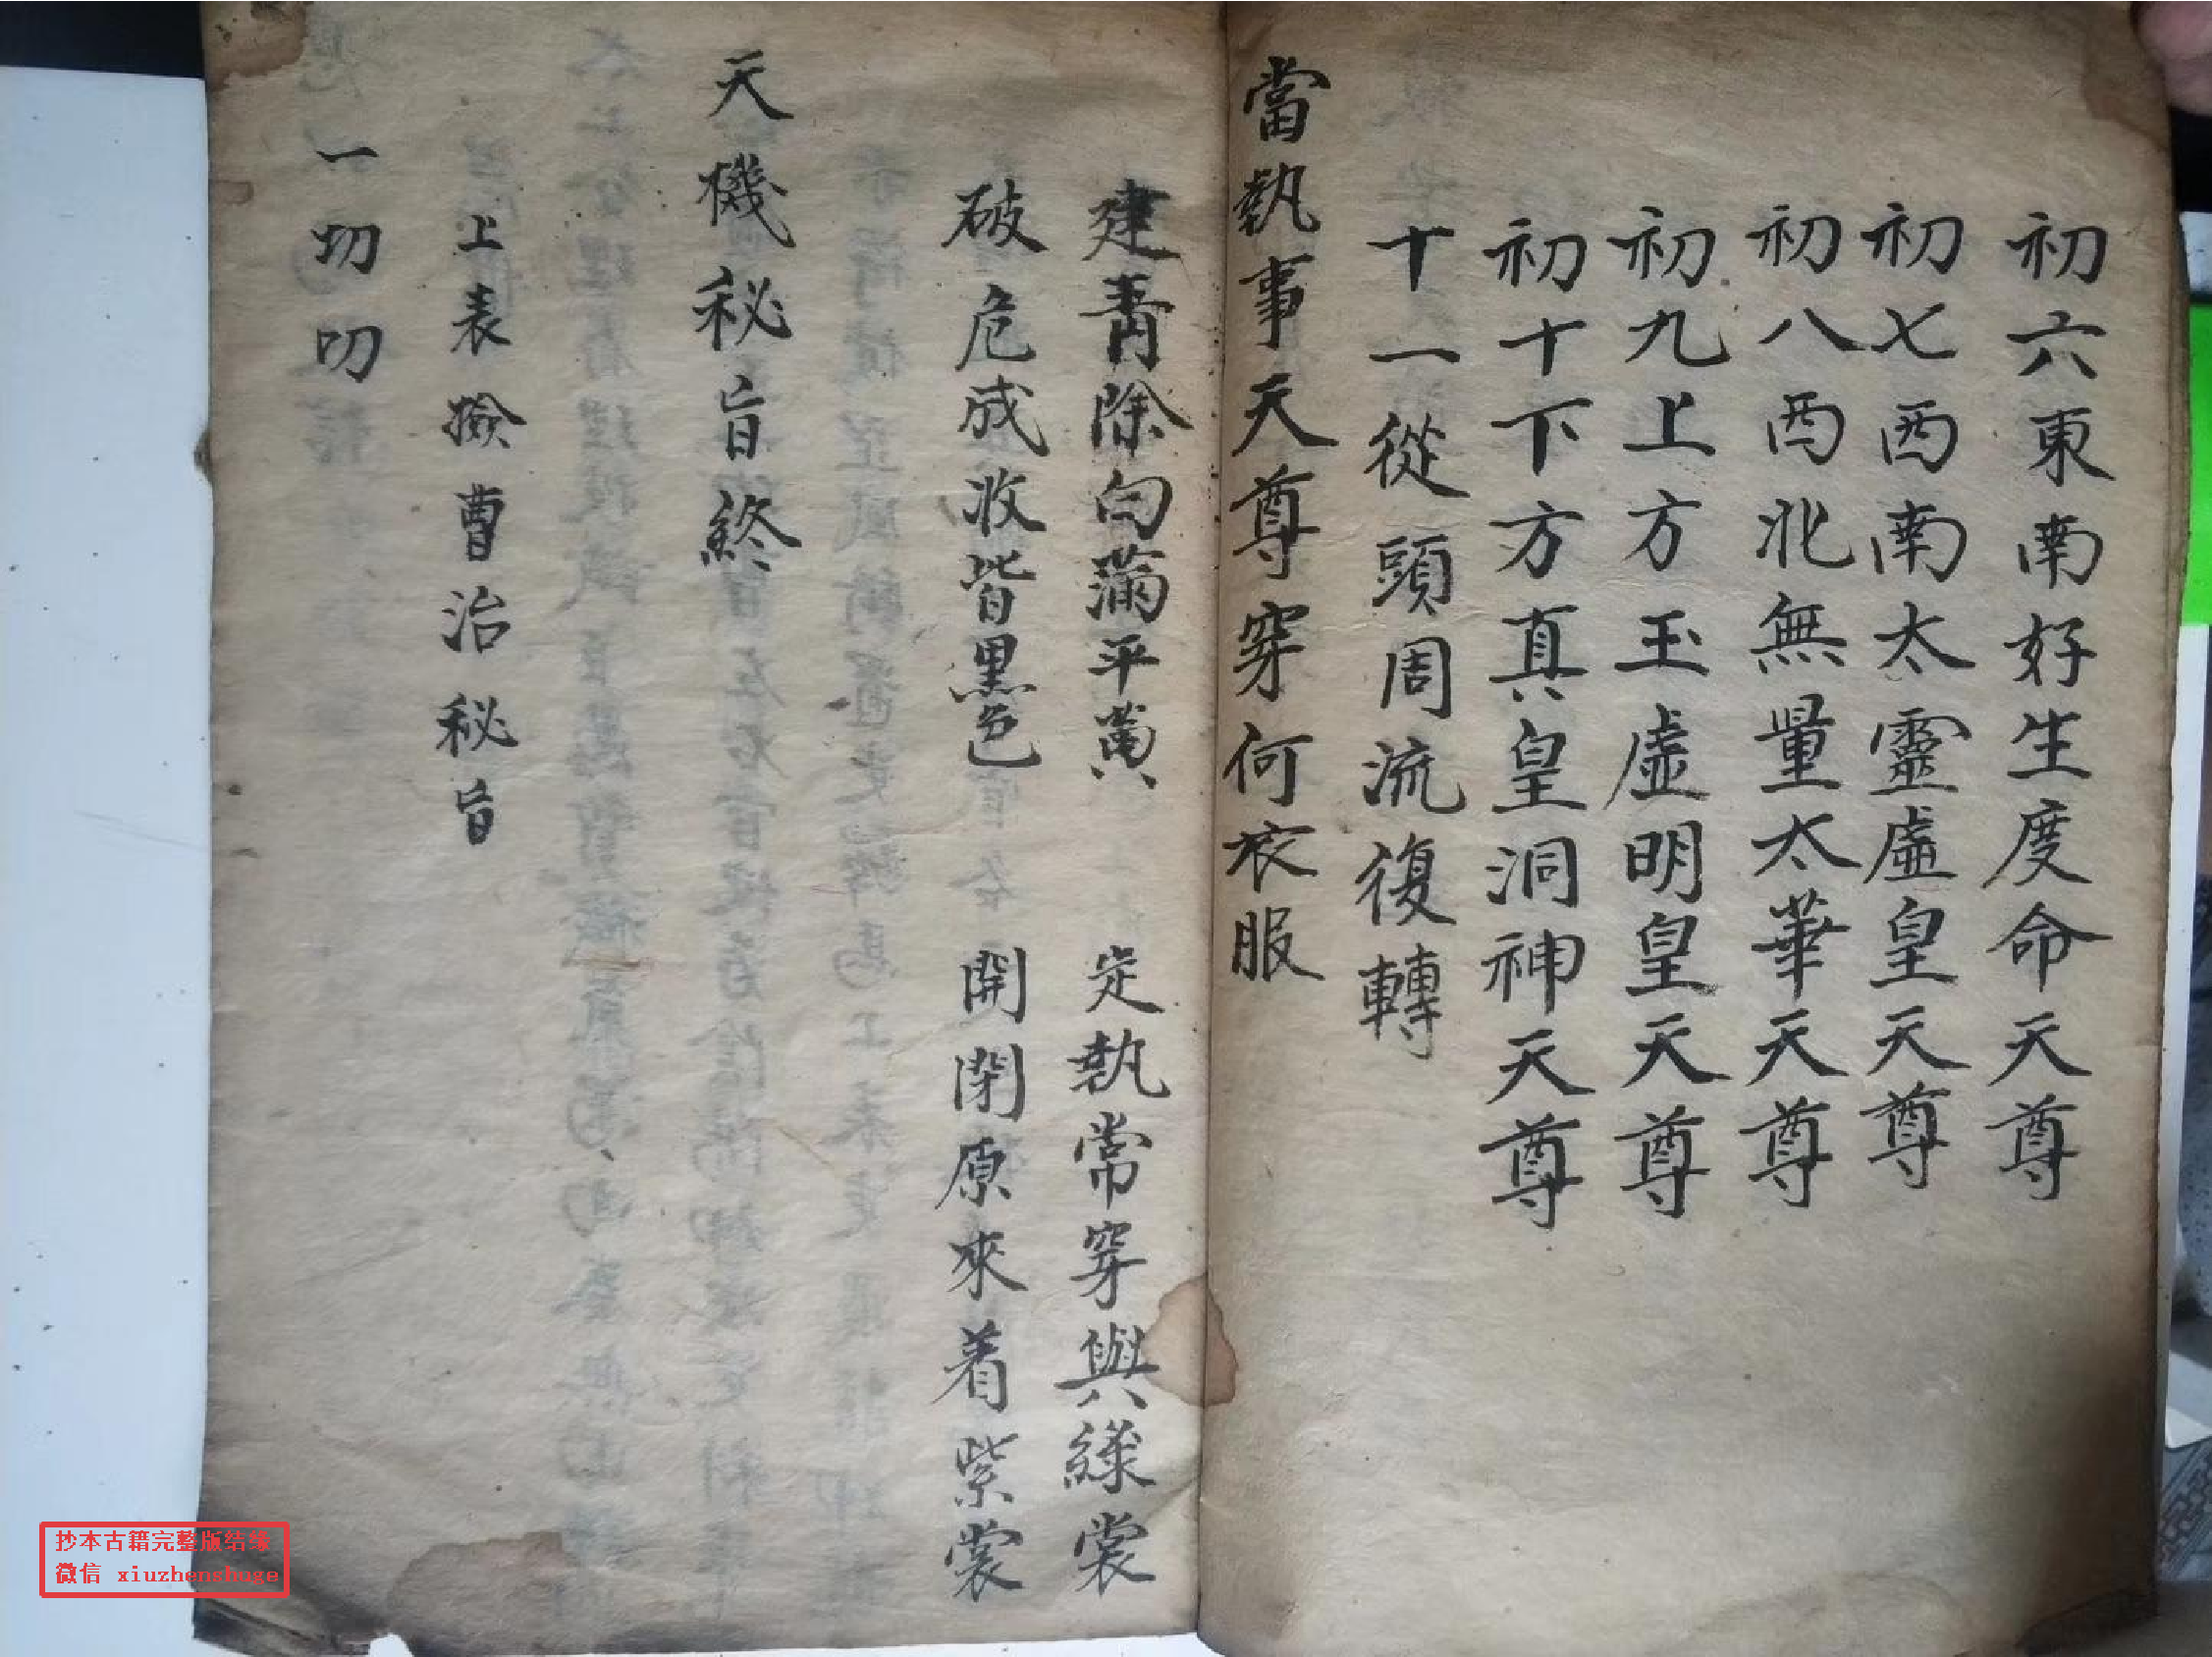 初六東南好生度命天尊
初七西南太靈虛皇天尊
初八西北無量太華天尊
初九上方玉虛明皇天尊
初十下方真皇洞神天尊
十一從頭周流復轉
當執事天尊穿何衣服
建青除白滿平黃 定執常穿與綠裳
破危成收皆黑色 開閉原來着紫裳
天機秘旨終
上表撿曹治秘旨
一切叨
抄本古籍完整版结缘
微信 xiuzhenshuge